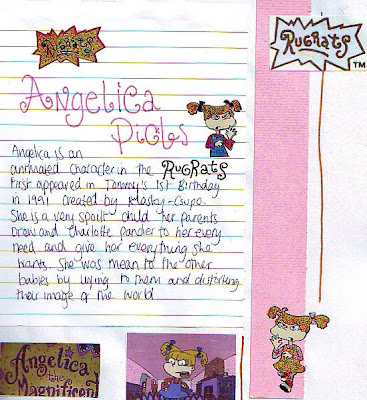 RUGRATS
RUGRATS
TM
Angelica
Picles
Angelica is an
animated character in the RUGRATS
First appeared in Tommy's 1st Birthday
in 1991 created by Klasky-Csupo.
She is a very spoilt child her parents
Drew and Charlotte pander to her every
need and give her everything she
wants. She was mean to the other
babies by lying to them and distorting
their image of the world
Angelica
the
Magnificent